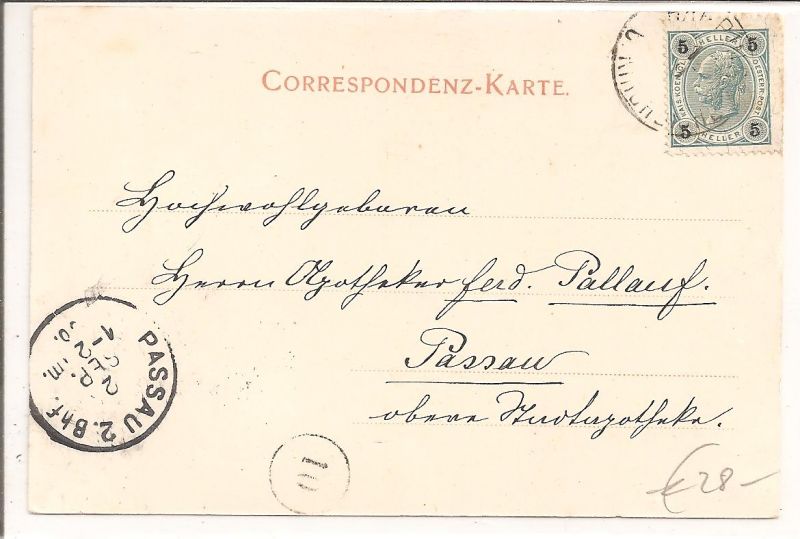 CORRESPONDENZ-KARTE.
5 HELLER 5
KAIS. KOENIGL. OESTERR. POST
5 HELLER 5
Hochwohlgeboren
Herrn Apotheker Ferd. Pallauf.
Passau
obere Stadtapotheke.
PASSAU 2. Bhf.
€ 28-